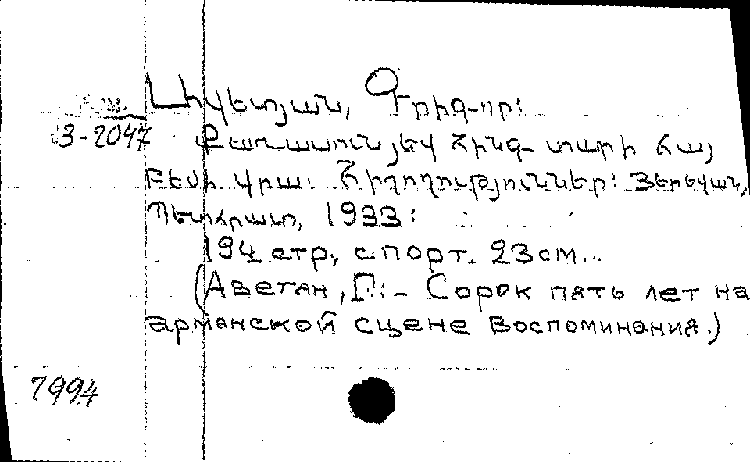 Ավետյան, Գրիգ-որ։
3-2047 Քառասուն յեվ հինգ տարի հայ
բեմի վրա։ Հիշողություններ։ Յերեվան,
Պետհրատ, 1933։
194 стр, с порт. 23см..
(Аветян, Г.:- Сорок пять лет на
армянской сцене Воспоминания.)
7994